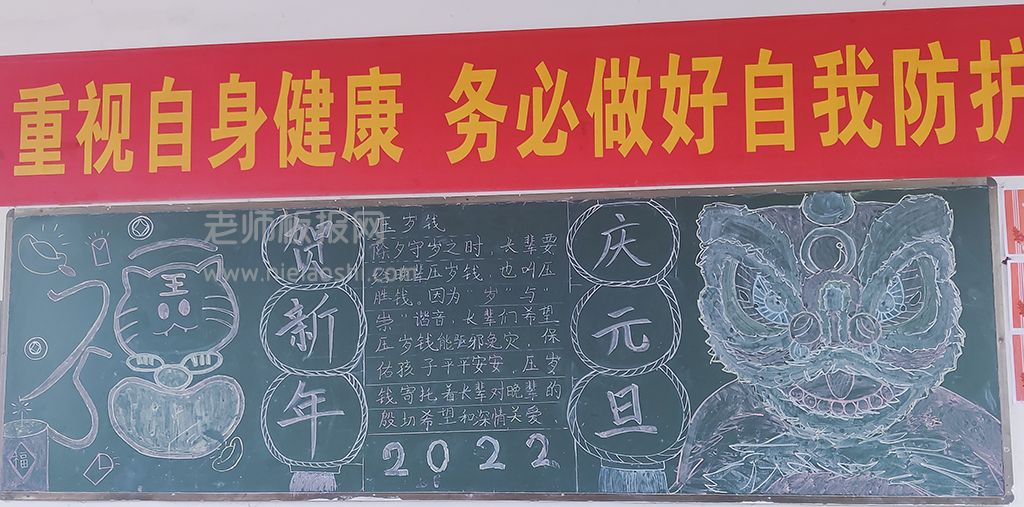 重视自身健康 务必做好自我防护
老师板报网
www.nielaoshi.com
贺新年
压岁钱
除夕守岁之时，长辈要
压岁钱，也叫压
胜钱。因为“岁”与“
祟”谐音，长辈们希望
压岁钱能驱邪免灾，保
佑孩子平平安安，压岁
钱寄托着长辈对晚辈的
殷切希望和深情关爱。
2022
庆元旦
王
福